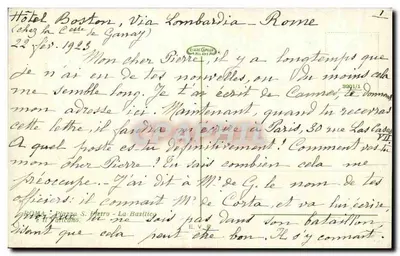 1
Hôtel Boston, Via Lombardia - Rome
(chez la Ctesse de Ganay)
22 fév. 1923
Mon cher Pierre, il y a longtemps que
je n'ai eu de tes nouvelles, ou du moins cela
me semble long. Je t'ai écrit de Cannes, te donnant
mon adresse ici. Maintenant, quand tu recevras
cette lettre, il faudra m'écrire Paris, 50 rue Las Cases
VII
A quel poste es tu définitivement! Comment vas-tu
mon cher Pierre! Tu sais combien cela me
préoccupe. - J'ai dit à Mr de G. le nom de tes
officiers: il connait Mr de Corta, et va lui écrire,
que tu sais pas dans son bataillon,
disant que cela peut être bon. Il s'y connait.
ROMA - Piazza S. Pietro - La Basilica